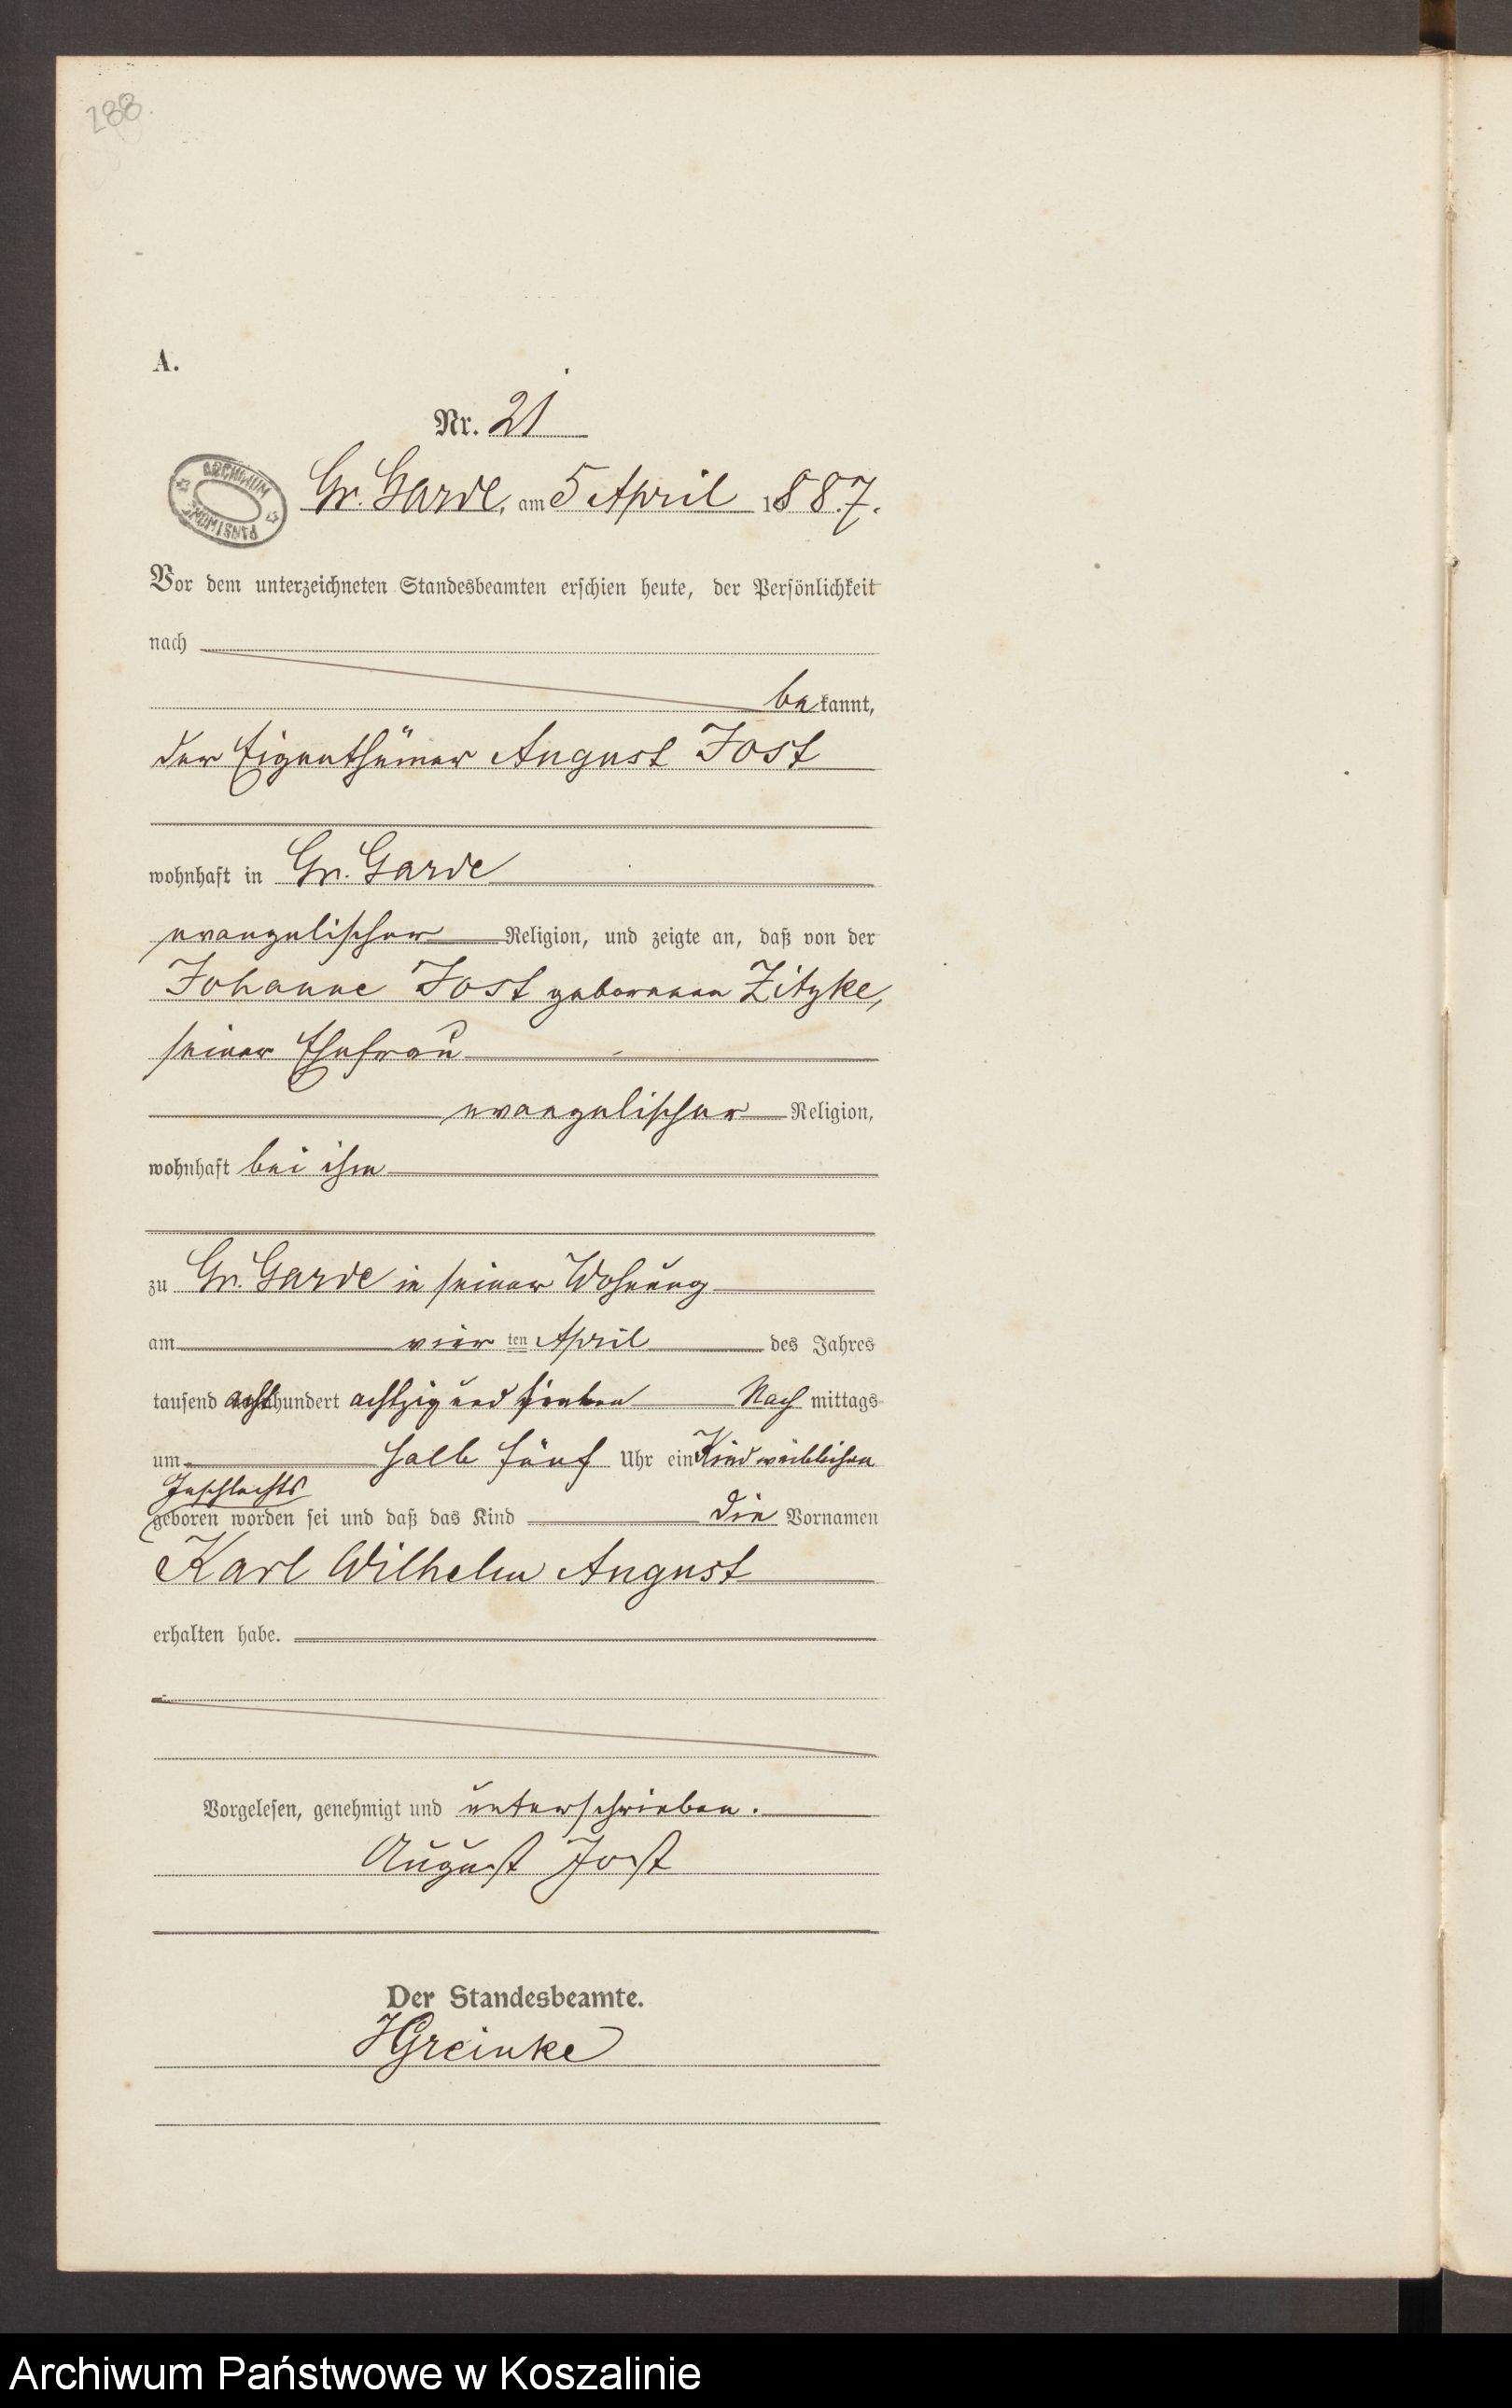 288.
A.
Nr. 21
ARCHIWUM PAŃSTWOWE
Gr. Garde, am 5 April 1887.
Vor dem unterzeichneten Standesbeamten erschien heute, der Persönlichkeit
nach
bekannt,
der Eigenthümer August Jost
wohnhaft in Gr. Garde
evangelischer Religion, und zeigte an, daß von der
Johanne Jost geborenen Zitzke,
seiner Ehefrau
evangelischer Religion,
wohnhaft bei ihm
zu Gr. Garde in seiner Wohnung
am vier ten April des Jahres
tausend acht hundert achtzig und sieben Nach mittags
um halb fünf Uhr ein Kind weiblichen
Geschlechts
geboren worden sei und daß das Kind die Vornamen
Karl Wilhelm August
erhalten habe.
Vorgelesen, genehmigt und unterschrieben.
August Jost
Der Standesbeamte.
HGreinke
Archiwum Państwowe w Koszalinie